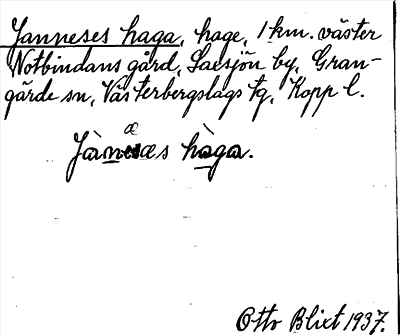 Janneses haga, hage, 1 km. väster
Notbindans gård, Saxsjön by, Gran-
gärde sn, Västerbergslags tg, Kopp l.
hàga.
Otto Blixt 1937.